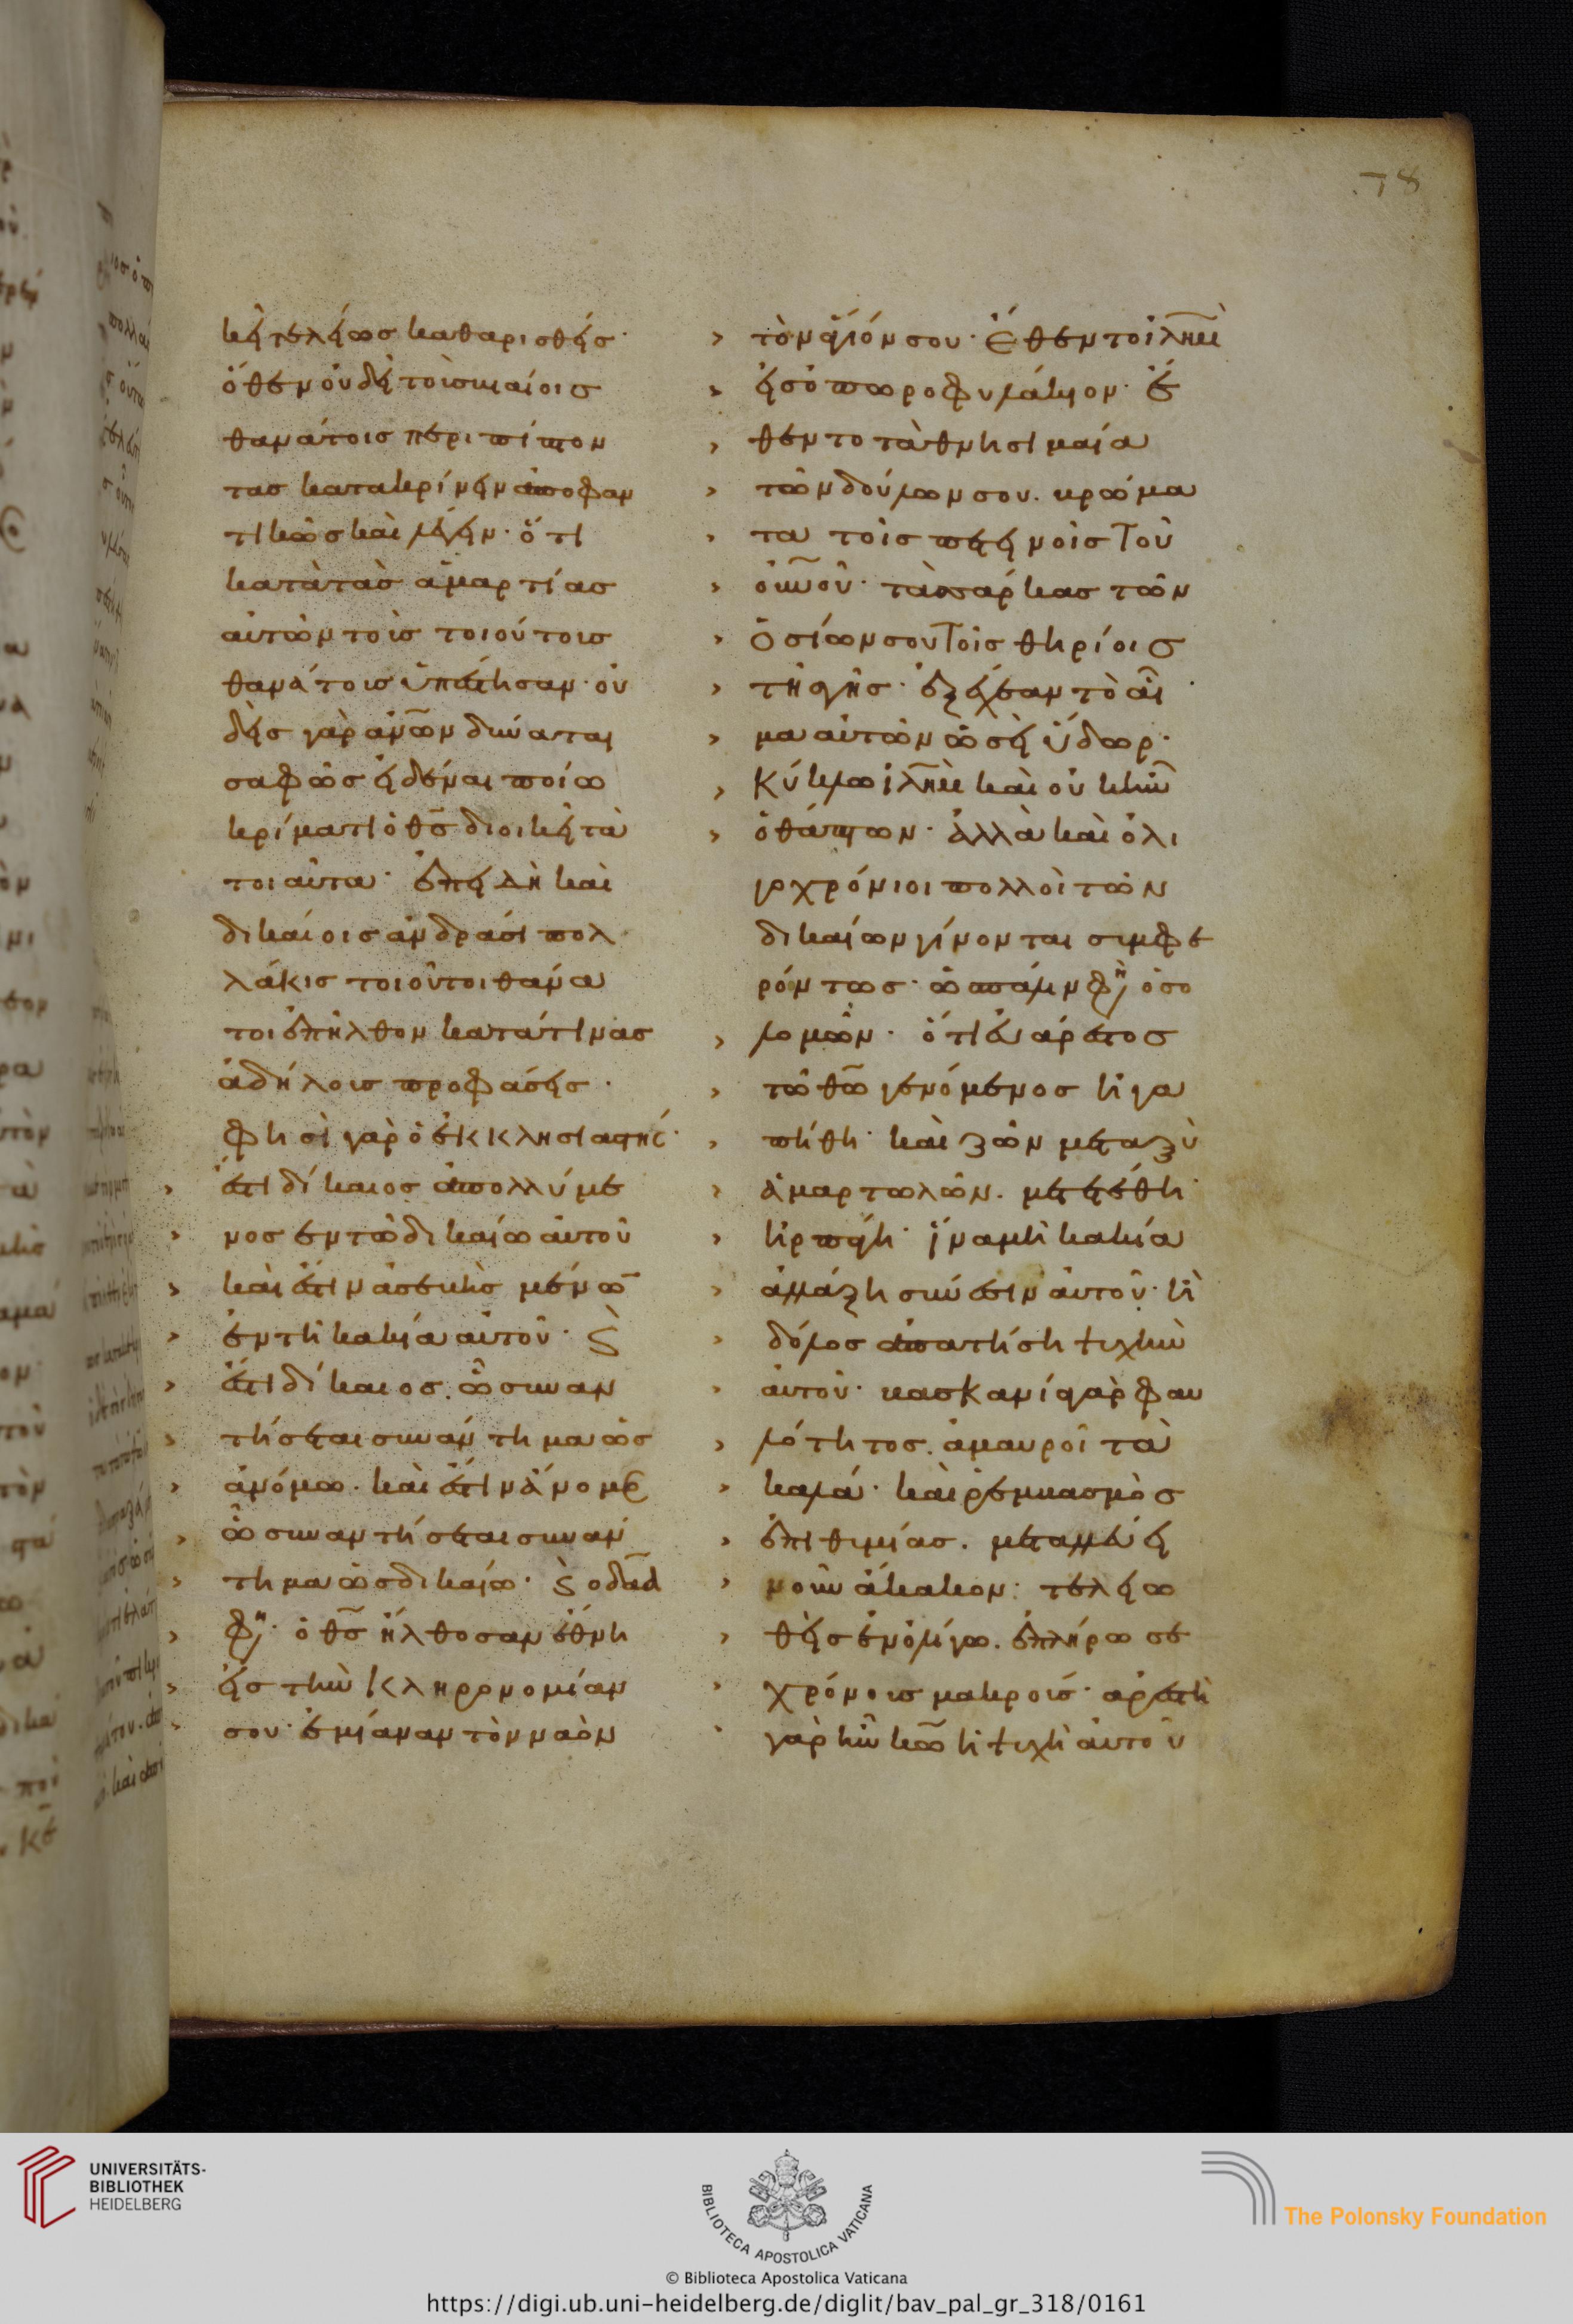 78
κεῖ τελείως καθαρισθείς·
ὅθεν οὐδὲ τοῖς βιαίοις
θανάτοις περιπίπτον
τας κατακρίνειν ἀποφαν
τικῶς καὶ λέγειν· ὅτι
κατὰ τὰς ἁμαρτίας
αὐτῶν τοῖς τοιούτοις
θανάτοις ὑπήντησαν· οὐ
δεὶς γὰρ ἀνῶν δύναται
σαφῶς εἰδέναι ποίω
κρίματι ὁ θς διοικεῖ τὰ
τοιαῦτα· ἐπεὶ δὴ καὶ
δικαίοις ἀνδράσι πολ
λάκις τοιοῦτοι θάνα
τοι ἐπῆλθον κατά τινας
ἀδήλους προφάσεις·
φησὶ γὰρ ὁ ἐκκλησιαστής·
ἐστι δίκαιος ἀπολλύμε
νος ἐν τῶ δικαίω αὐτοῦ
καὶ ἐστιν ἀσεβὴς μένων
ἐν τῆ κακία αὐτοῦ· ϛ
ἐστι δίκαιος ὧ συναν
τήσεται συνάντημα ὡς
ἀνόμω· καὶ ἐστιν ἄνομος
ὧ συναντήσεται συνάν
τημα ὡς δικαίω· ϛ ὁ δαδ
φη· ὁ θς ἤλθοσαν ἔθνη
εἰς τὴν κληρονομίαν
σου· ἐμίαναν τὸν ναὸν
τὸν ἅγιόν σου· ἔθεντο ἰλημ
εἰς ὀπωροφυλάκιον· ἔ
θεντο τὰ θνησιμαῖα
τῶν δούλων σου. βρώμα
τα τοῖς πετεινοῖς τοῦ
οὐνοῦ· τὰς σάρκας τῶν
ὁσίων σου τοῖς θηρίοις
τῆς γῆς· ἐξέχεαν τὸ αἷ
μα αὐτῶν ὡσεὶ ὕδωρ·
κύκλω ἰλημ καὶ οὐκ ἦν
ὁ θάπτων· ἀλλὰ καὶ ὀλι
γοχρόνιοι πολλοὶ τῶν
δικαίων γίνονται συμφε
ρόντως· ὡς πάλιν φη ὁ σο
λομῶν· ὅτι εὐάρεστος
τῶ θω γενόμενος ἠγα
πήθη· καὶ ζῶν μεταξὺ
ἁμαρτωλῶν. μετετέθη·
ἡρπάγη· ἵνα μὴ κακία
ἀλλάξη σύνεσιν αὐτοῦ· ἢ
δόλος ἀπατήση ψυχὴν
αὐτοῦ· βασκανία γὰρ φαυ
λότητος. ἀμαυροῖ τὰ
καλά· καὶ ῥεμβασμὸς
ἐπιθυμίας. μεταλλεύει
νοῦν ἄκακον: τελειω
θεὶς ἐν ὀλίγω. ἐπλήρωσε
χρόνους μακρούς· ἀρεστὴ
γὰρ ἦν κω ἡ ψυχὴ αὐτοῦ
UNIVERSITÄTS-
BIBLIOTHEK
HEIDELBERG
BIBLIOTECA APOSTOLICA VATICANA
The Polonsky Foundation
© Biblioteca Apostolica Vaticana
https://digi.ub.uni-heidelberg.de/diglit/bav_pal_gr_318/0161